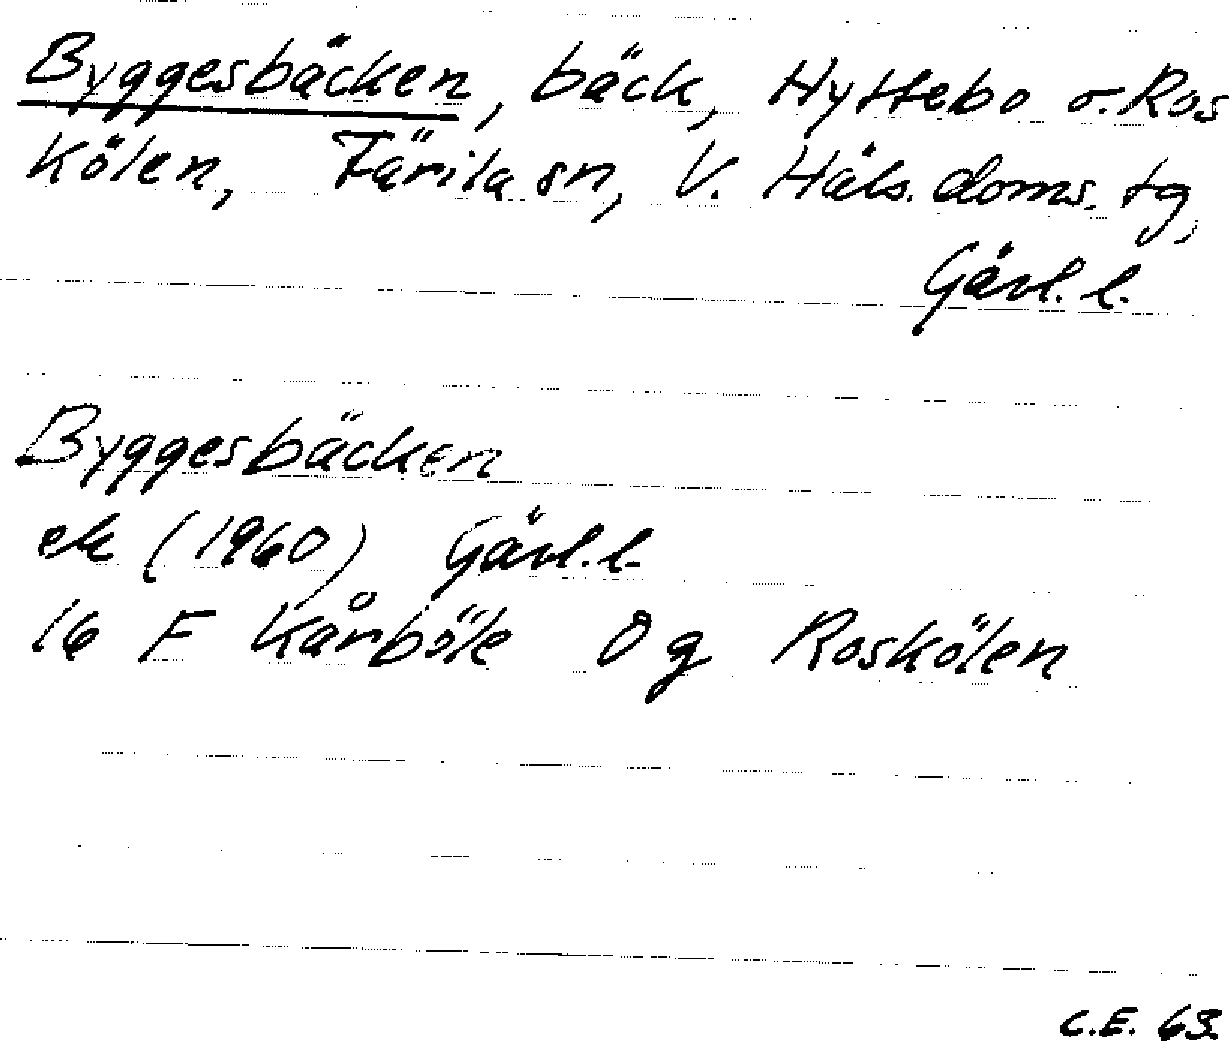 Byggesbäcken, bäck, Hyttebo o. Ros
kölen, Färila sn, V. Häls. doms. tg,
Gävl. l.
Byggesbäcken
ek (1960) Gävl. l.
16 F Kårböle Og Roskölen
C.E. 63.